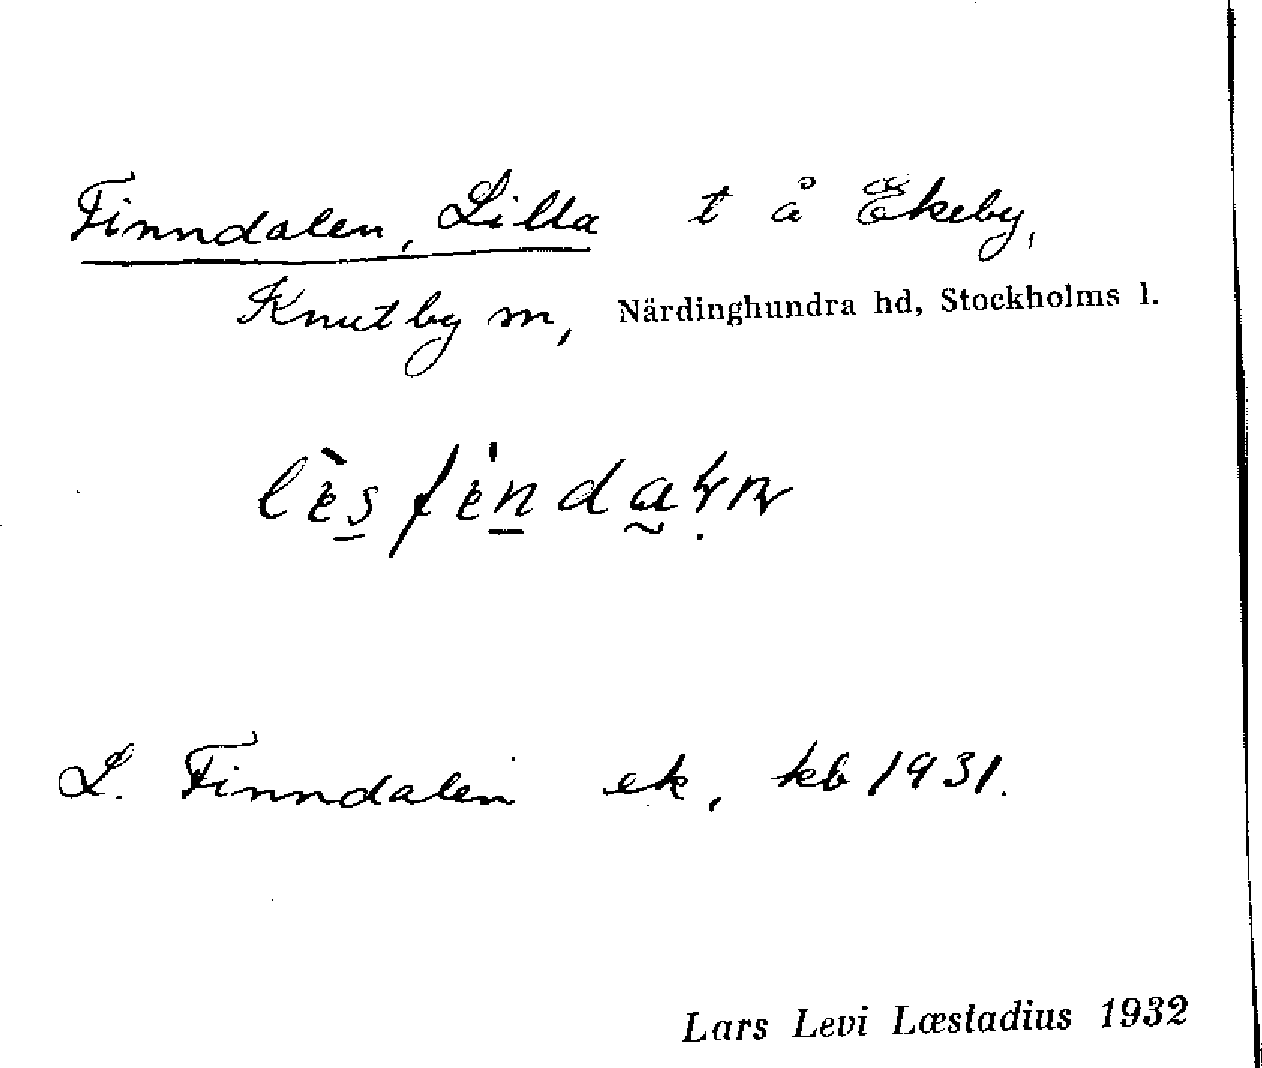 Finndalen, Lilla t å Ekeby,
Knutby sn, Närdinghundra hd, Stockholms l.
L. Finndalen ek, kb 1931.
Lars Levi Læstadius 1932